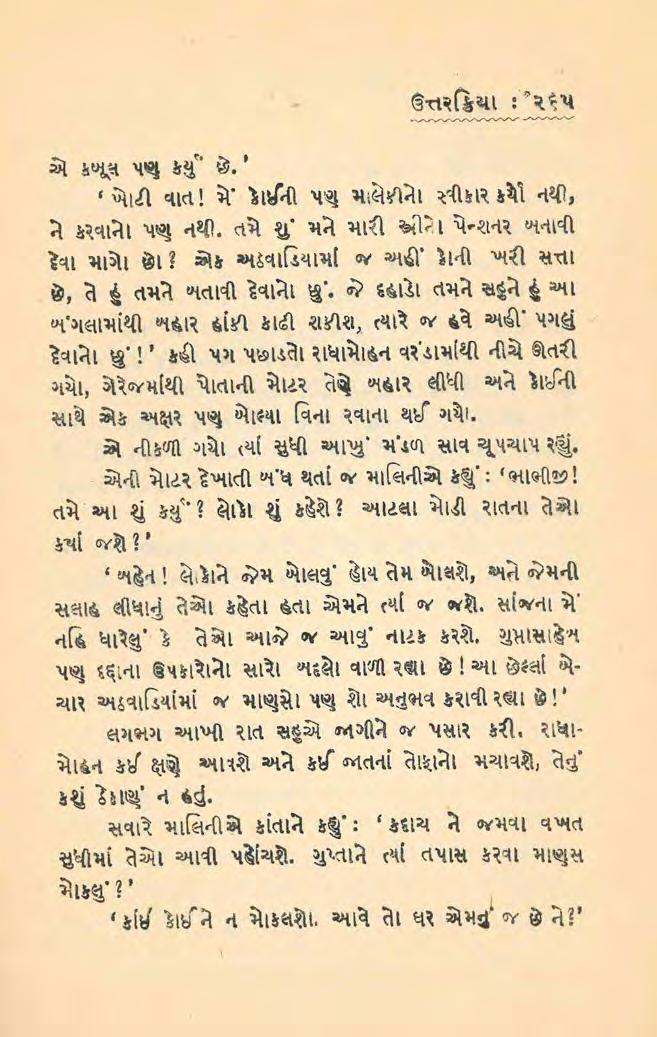 ઉત્તરક્રિયા : ૨૬૫
એ કબૂલ પણ કર્યું છે.'
'ખોટી વાત! મેં કોઈની પણ માલેકીનો સ્વીકાર કર્યો નથી,
ને કરવાનો પણ નથી. તમે શું મને મારી સ્ત્રીનો પેન્શનર બનાવી
દેવા માગો છો? એક અઠવાડિયામાં જ અહીં કોની ખરી સત્તા
છે, તે હું તમને બતાવી દેવાનો છું. જે દહાડો તમને સહુને હું આ
બંગલામાંથી બહાર હાંકી કાઢી શકીશ, ત્યારે જ હવે અહીં પગલું
દેવાનો છું!' કહી પગ પછાડતો રાધામોહન વરંડામાંથી નીચે ઊતરી
ગયો, ગેરેજમાંથી પોતાની મોટર તેણે બહાર લીધી અને કોઈની
સાથે એક અક્ષર પણ બોલ્યા વિના રવાના થઈ ગયો.
એ નીકળી ગયો ત્યાં સુધી આખું મંડળ સાવ ચૂપચાપ રહ્યું.
એની મોટર દેખાતી બંધ થતાં જ માલિનીએ કહ્યું : 'ભાભીજી!
તમે આ શું કર્યું? લોકો શું કહેશે? આટલા મોડી રાતના તેઓ
કયાં જશે?'
'બહેન! લોકોને જેમ બોલવું હોય તેમ બોલશે, અને જેમની
સલાહ લીધાનું તેઓ કહેતા હતા એમને ત્યાં જ જશે. સાંજના મેં
નહિ ધારેલું કે તેઓ આજે જ આવું નાટક કરશે. ગુપ્તાસાહેબ
પણ દદ્દાના ઉપકારોનો સારો બદલો વાળી રહ્યા છે! આ છેલ્લાં બે-
ચાર અઠવાડિયાંમાં જ માણસો પણ શો અનુભવ કરાવી રહ્યા છે!'
લગભગ આખી રાત સહુએ જાગીને જ પસાર કરી. રાધા-
મોહન કઈ ક્ષણે આવશે અને કઈ જાતનાં તોફાનો મચાવશે, તેનું
કશું ઠેકાણું ન હતું.
સવારે માલિનીએ કાંતાને કહ્યું : 'કદાચ ને જમવા વખત
સુધીમાં તેઓ આવી પહોંચશે. ગુપ્તાને ત્યાં તપાસ કરવા માણસ
મોકલું?'
'કાંઈ કોઈને ન મોકલશો. આવે તો ઘર એમનું જ છે ને?'